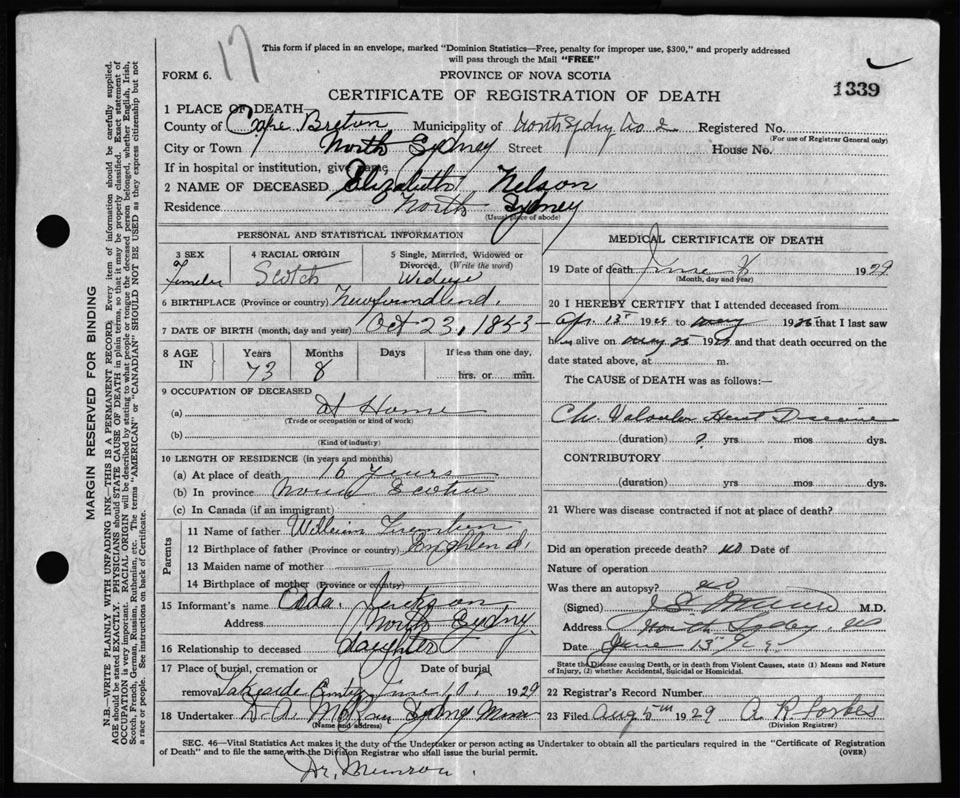 17
This form if placed in an envelope, marked "Dominion Statistics—Free, penalty for improper use, $300," and properly addressed
will pass through the Mail "FREE"
FORM 6.
PROVINCE OF NOVA SCOTIA
CERTIFICATE OF REGISTRATION OF DEATH
1339
1 PLACE OF DEATH
County of Cape Breton Municipality of North Sydney Registered No.
(For use of Registrar General only)
City or Town North Sydney Street House No.
If in hospital or institution, give name
2 NAME OF DECEASED Elizabeth Nelson
Residence North Sydney
(Usual place of abode)
PERSONAL AND STATISTICAL INFORMATION
3 SEX
Female
4 RACIAL ORIGIN
Scotch
5 Single, Married, Widowed or
Divorced. (Write the word)
6 BIRTHPLACE (Province or country) Newfoundland.
7 DATE OF BIRTH (month, day and year) Oct 23, 1853
8 AGE IN
Years Months Days If less than one day,
73 8 hrs. or min.
9 OCCUPATION OF DECEASED
(a) At Home
(Trade or occupation or kind of work)
(b)
(Kind of industry)
10 LENGTH OF RESIDENCE (in years and months)
(a) At place of death 16 years
(b) In province Nova Scotia
(c) In Canada (if an immigrant)
Parents
11 Name of father William
12 Birthplace of father (Province or country) England.
13 Maiden name of mother
14 Birthplace of mother (Province or country)
15 Informant's name Ada Jackson
Address North Sydney.
16 Relationship to deceased daughter
17 Place of burial, cremation or Date of burial
removal Lakeside June 10, 1929
18 Undertaker D. A. Sydney Mines
(Name and address)
MEDICAL CERTIFICATE OF DEATH
19 Date of death June 1929
(Month, day and year)
20 I HEREBY CERTIFY that I attended deceased from
Apr. 1929 to May 19 that I last saw
h alive on May 25 19 and that death occurred on the
date stated above, at m.
The CAUSE of DEATH was as follows:—
Ch. Valvular Heart Disease
(duration) ? yrs. mos dys.
CONTRIBUTORY
(duration) yrs. mos. dys.
21 Where was disease contracted if not at place of death?
Did an operation precede death? no Date of
Nature of operation
Was there an autopsy? no
(Signed) Munro M.D.
Address North Sydney, NS
Date June 13
State the Disease causing Death, or in death from Violent Causes, state (1) Means and Nature
of Injury, (2) whether Accidental, Suicidal or Homicidal.
22 Registrar's Record Number
23 Filed Aug 5th 1929 A. R. Forbes
(Division Registrar)
SEC. 46—Vital Statistics Act makes it the duty of the Undertaker or person acting as Undertaker to obtain all the particulars required in the "Certificate of Registration
of Death" and to file the same with the Division Registrar who shall issue the burial permit.
(OVER)
Dr. Munroe.
MARGIN RESERVED FOR BINDING
N.B.—WRITE PLAINLY WITH UNFADING INK—THIS IS A PERMANENT RECORD. Every item of information should be carefully supplied.
AGE should be stated EXACTLY. PHYSICIANS should STATE CAUSE OF DEATH in plain terms, so that it may be properly classified. Exact statement of
OCCUPATION is very important. RACIAL ORIGIN will be described by stating to what people or tongue the deceased person belonged, whether English, Irish,
Scotch, French, German, Russian, Ruthenian, etc. The terms "AMERICAN" or "CANADIAN" SHOULD NOT BE USED as they express citizenship but not
a race or people. See instructions on back of Certificate.